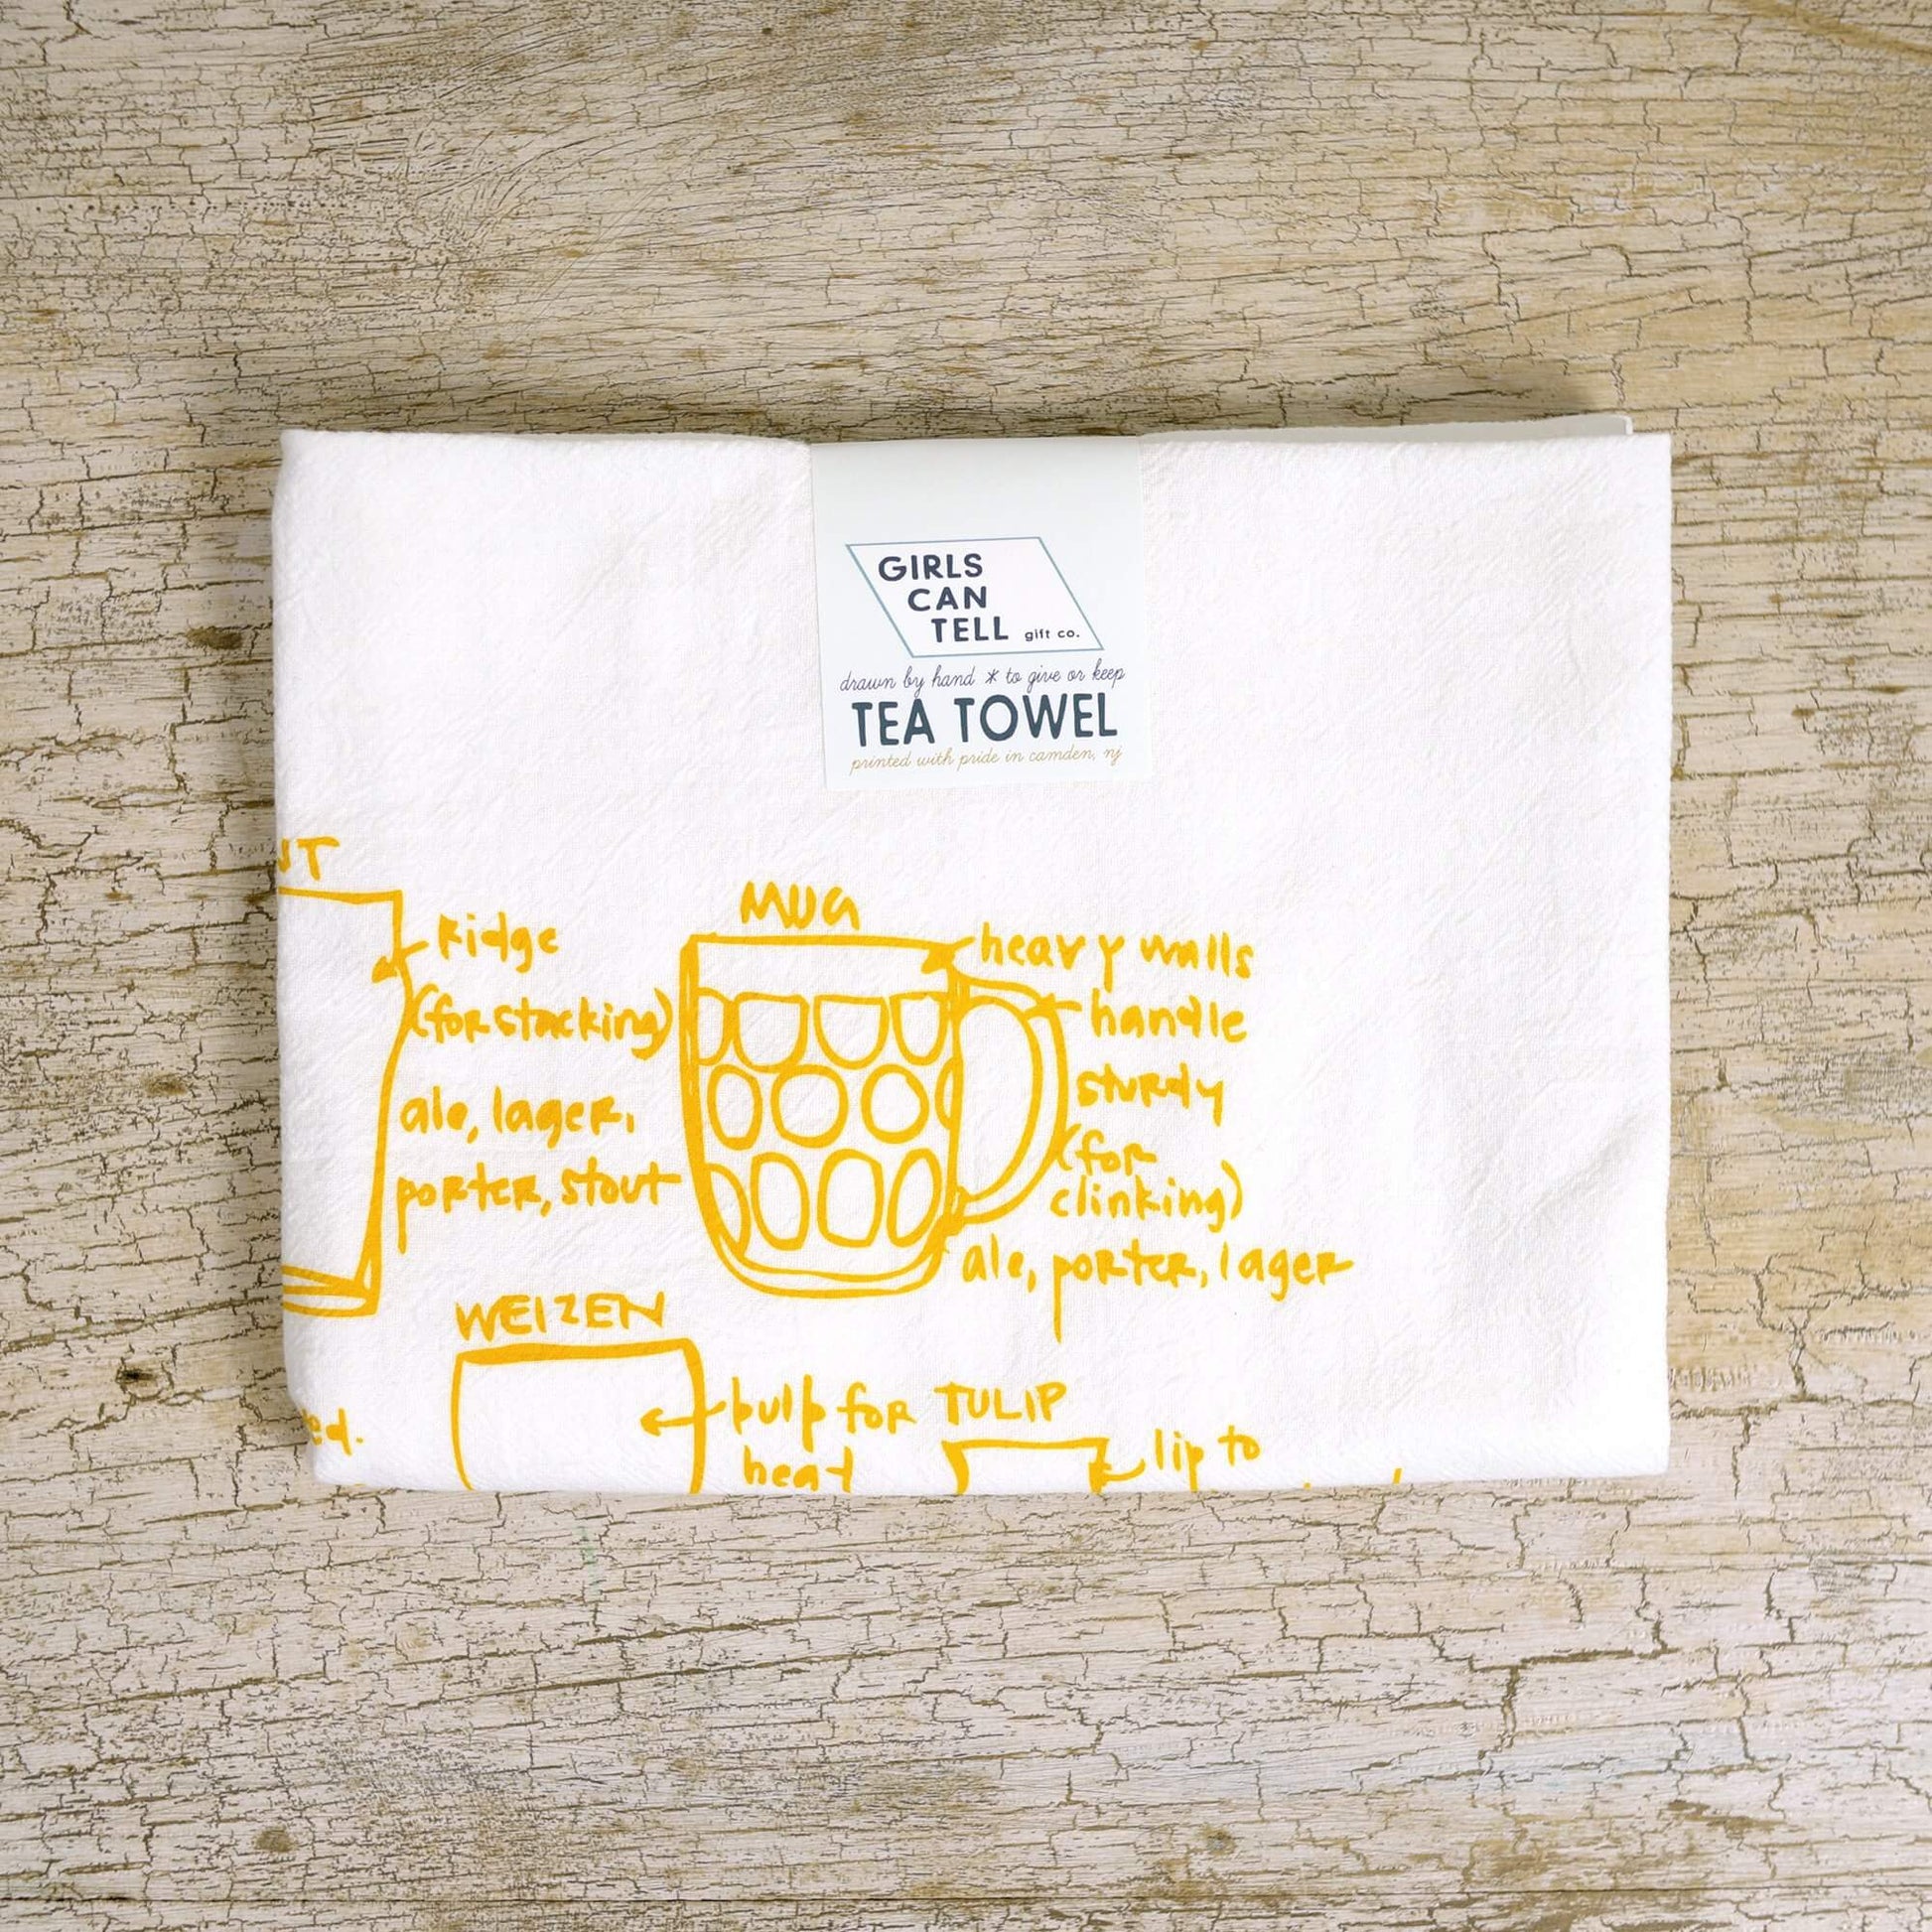 GIRLS
CAN
TELL gift co.
drawn by hand * to give or keep
TEA TOWEL
printed with pride in camden, nj
Ridge
(for stacking)
ale, lager,
porter, stout
MUG
heavy walls
handle
sturdy
(for
clinking)
ale, porter, lager
WEIZEN
bulb for
head
TULIP
lip to